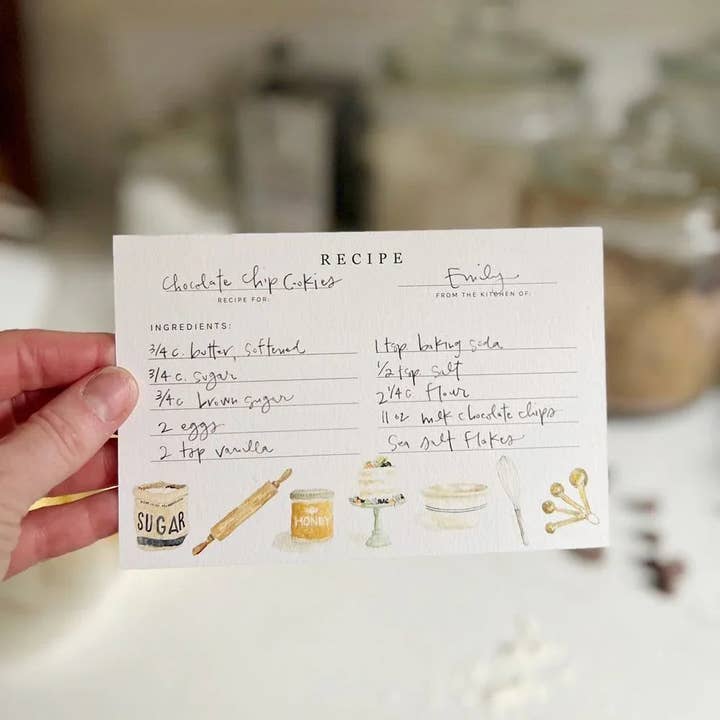 RECIPE
Chocolate Chip Cookies
RECIPE FOR:
Emily
FROM THE KITCHEN OF:
INGREDIENTS:
3/4 c. butter, softened
3/4 c. sugar
3/4 c brown sugar
2 eggs
2 tsp vanilla
1 tsp baking soda
1/2 tsp salt
2 1/4 c flour
11 oz milk chocolate chips
Sea salt flakes
SUGAR
HONEY